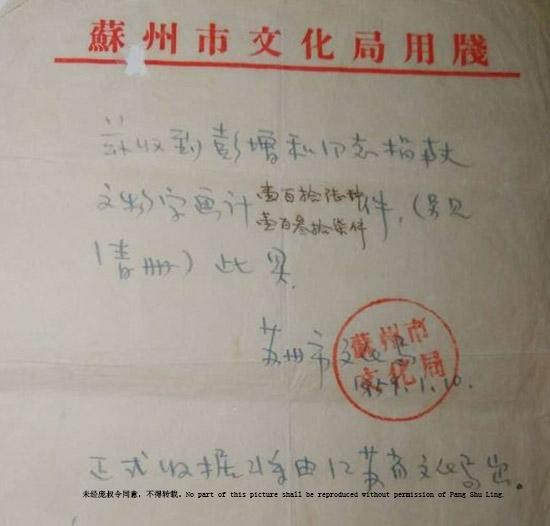 蘇州市文化局用牋
兹收到彭增和同志捐献
文物字画计壹百拾陆种 壹百叁拾柒件件,(另见
清册)此
苏州市文化局
蘇州市
文化局
1959.1.10.
正式收据将由江苏省文化局出。
未经庞叔令同意,不得转载。No part of this picture shall be reproduced without permission of Pang Shu Ling.